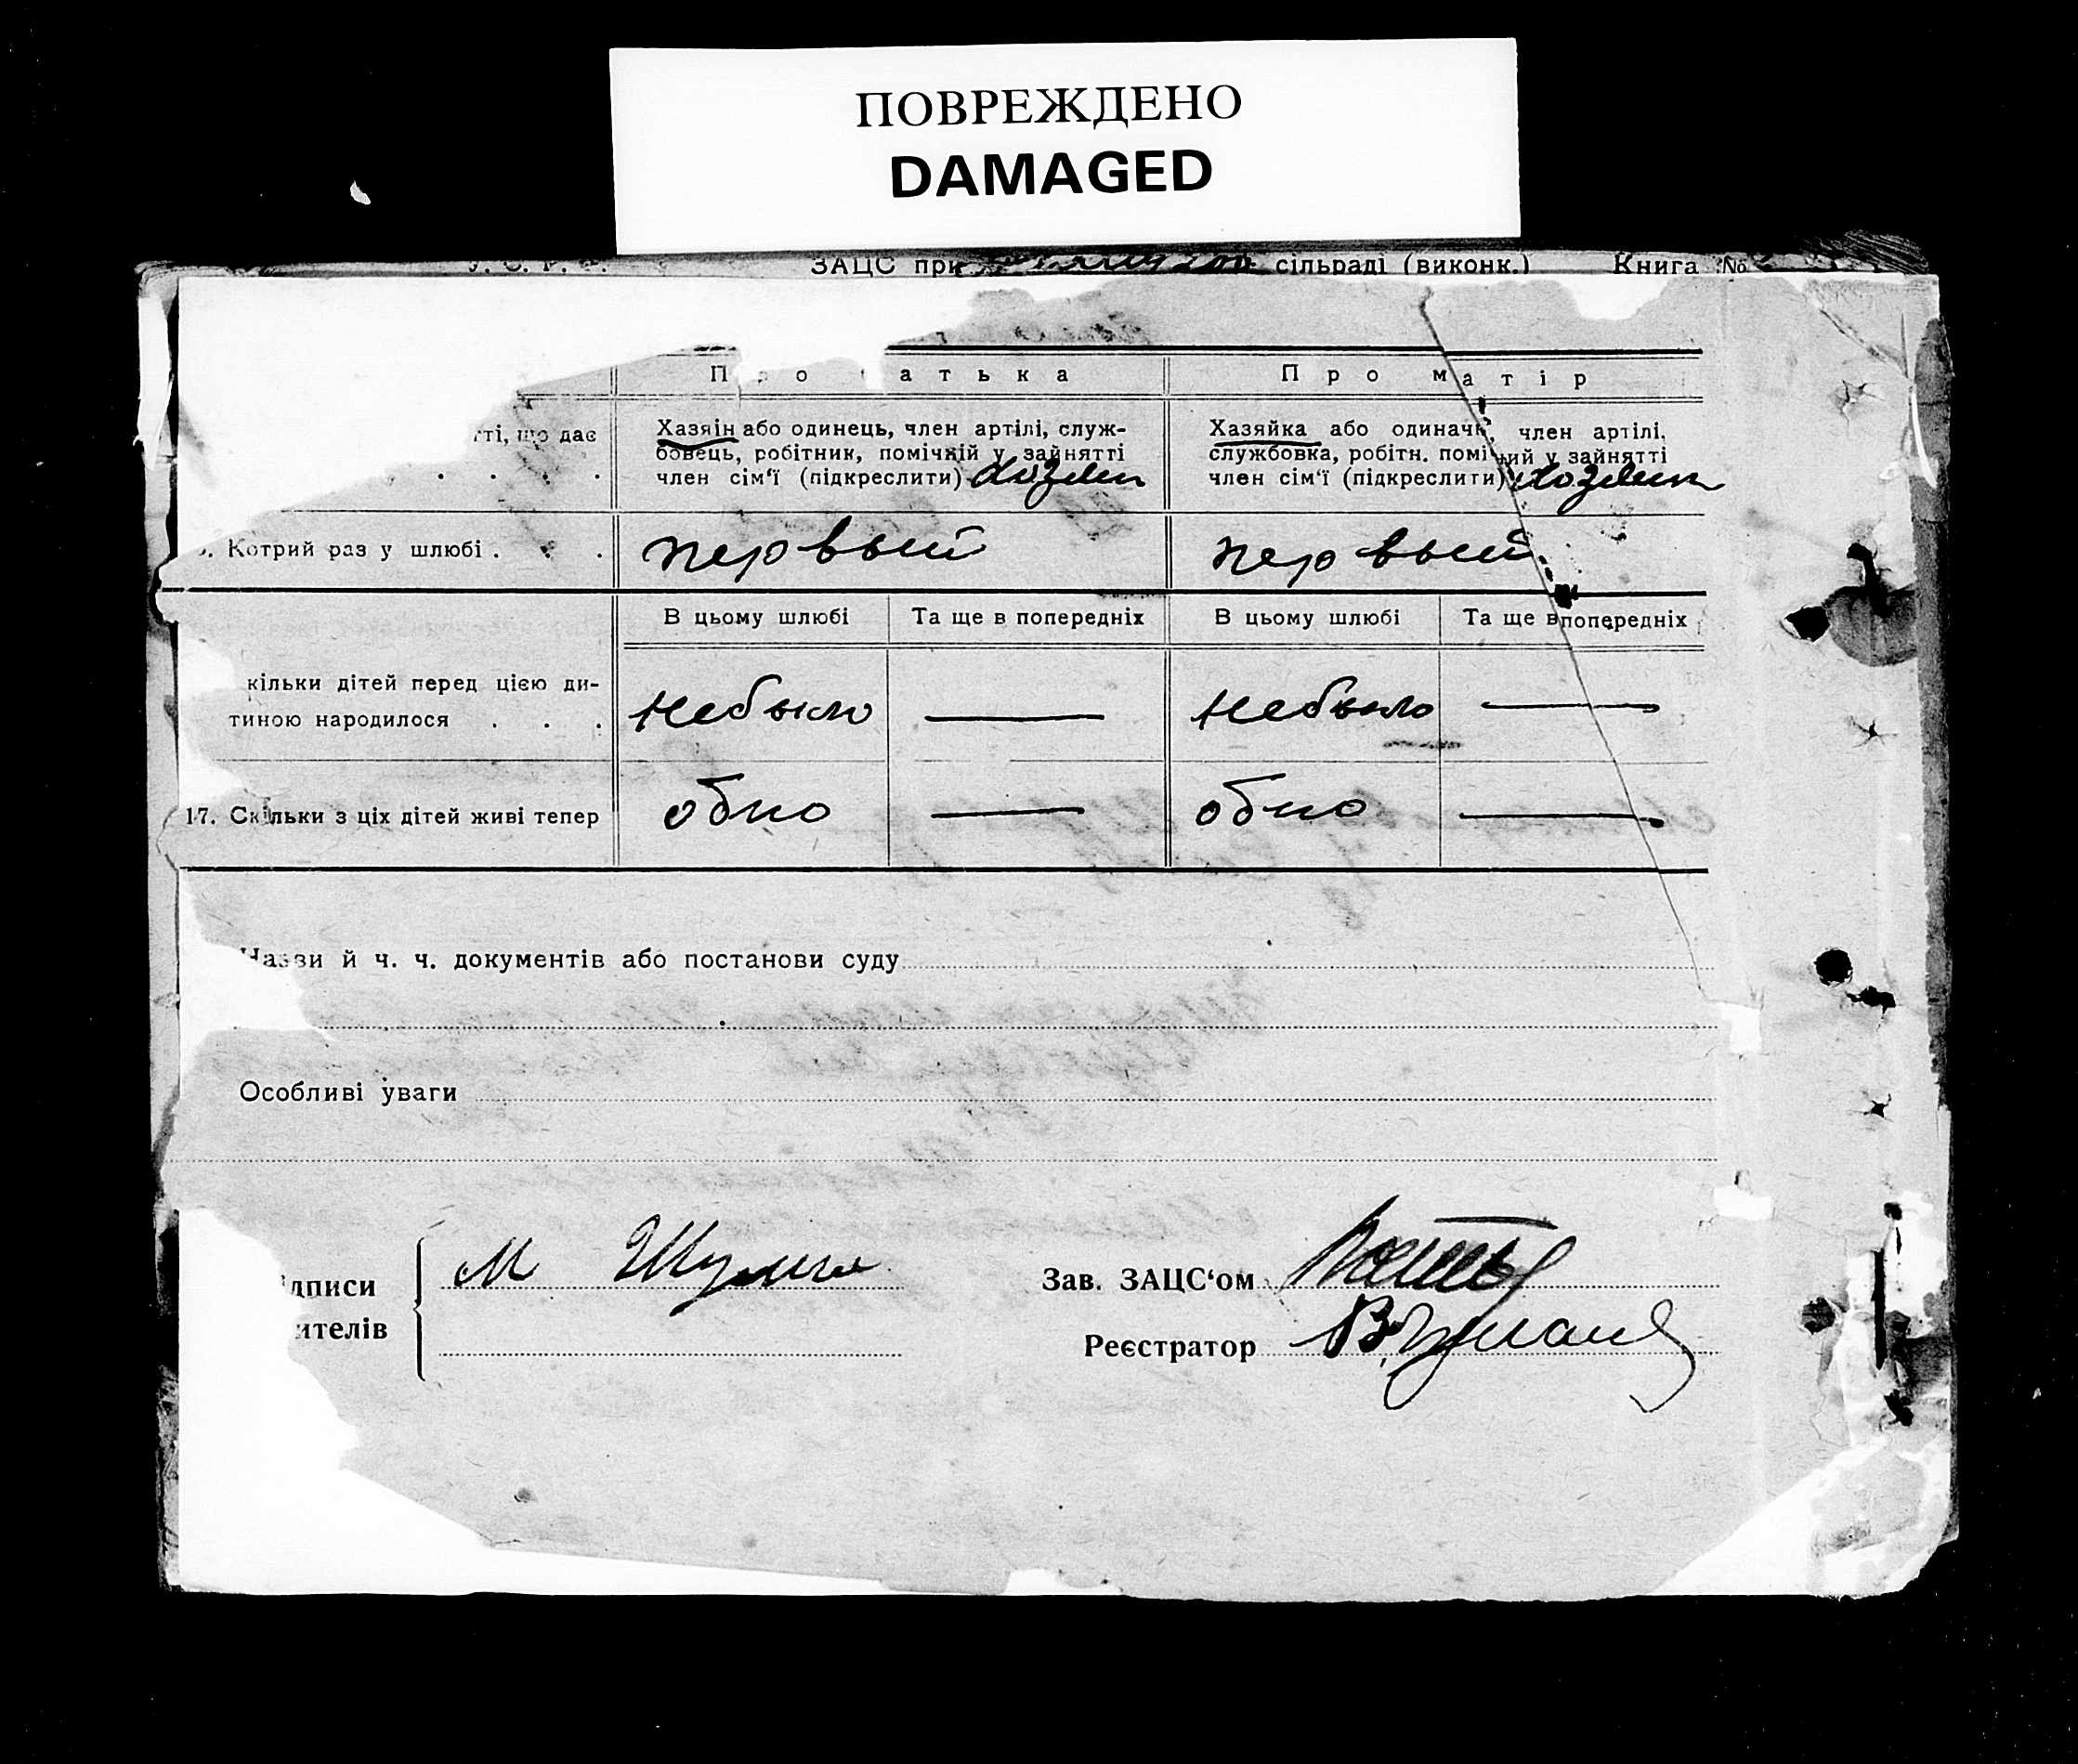 ПОВРЕЖДЕНО
DAMAGED
У. С. Р. Р. ЗАЦС при сільраді (виконк.) Книга №
Про батька Про матір
що дає
Хазяін або одинець, член артілі, служ-
бовець, робітник, помічний у зайнятті
член сім'ї (підкреслити) хозяин
Хазяйка або одиначка, член артілі,
службовка, робітн. помічний у зайнятті
член сім'ї (підкреслити) хозяин
Котрий раз у шлюбі . . . первый первый
В цьому шлюбі Та ще в попередніх В цьому шлюбі Та ще в попередніх
кільки дітей перед цією ди-
тиною народилося . . . небыло — небыло —
17. Скільки з ціх дітей живі тепер одно — одно —
Назви й ч. ч. документів або постанови суду
Особливі уваги
дписи М Шульга Зав. ЗАЦС'ом
ителів Реєстратор